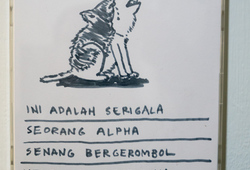 INI ADALAH SERIGALA
SEORANG ALPHA
SENANG BERGEROMBOL